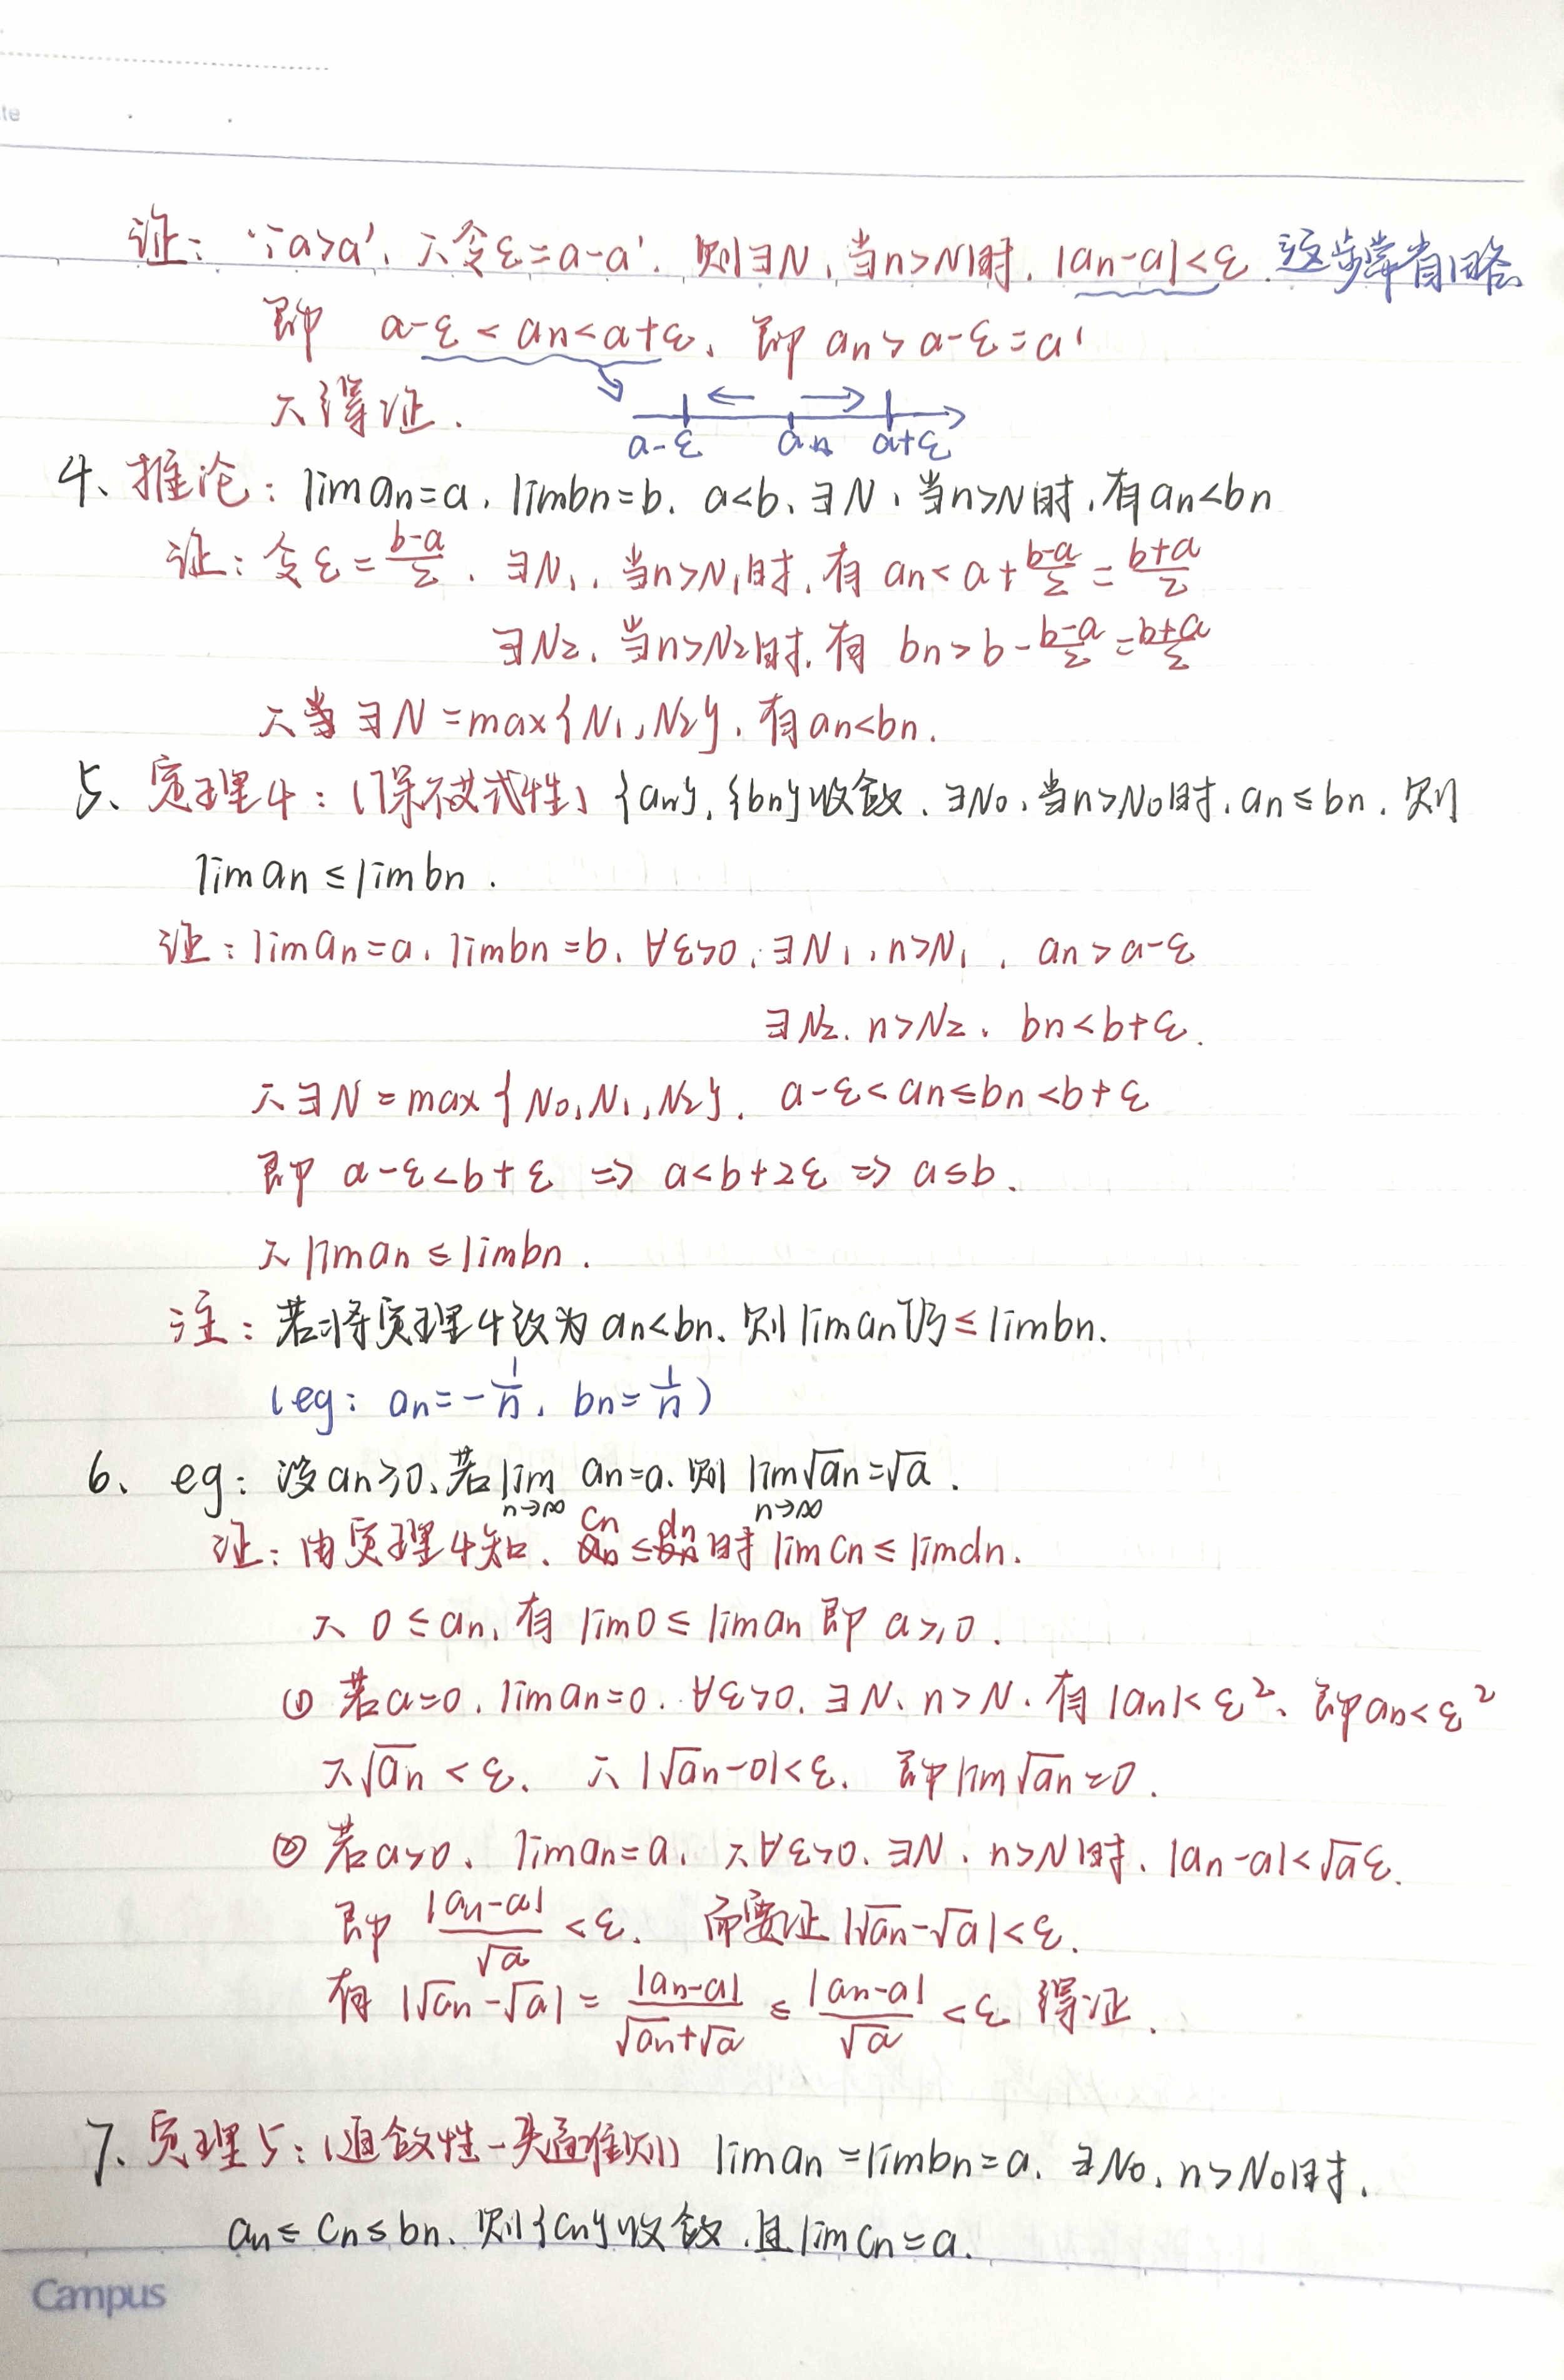 证：∵a>a'，∴令ε=a-a'．则∃N，当n>N时，|an-a|<ε．这步常省略
即 a-ε<an<a+ε，即 an>a-ε=a'
∴得证．
a-ε an a+ε
4、推论：lim an=a，lim bn=b，a<b，∃N，当n>N时，有an<bn
证：令ε=\frac{b-a}{2}，∃N₁，当n>N₁时，有 an<a+\frac{b-a}{2}=\frac{b+a}{2}
∃N₂，当n>N₂时，有 bn>b-\frac{b-a}{2}=\frac{b+a}{2}
∴当∃N=max{N₁,N₂}，有an<bn．
5、定理4：(保不等式性) {an}，{bn}收敛，∃N₀，当n>N₀时，an≤bn．则
lim an≤lim bn．
证：lim an=a，lim bn=b，∀ε>0，∃N₁，n>N₁，an>a-ε
∃N₂，n>N₂，bn<b+ε．
∴∃N=max{N₀,N₁,N₂}，a-ε<an≤bn<b+ε
即 a-ε<b+ε ⇒ a<b+2ε ⇒ a≤b．
∴lim an≤lim bn．
注：若将定理4改为an<bn，则lim an仍≤lim bn．
(eg：an=-\frac{1}{n}，bn=\frac{1}{n})
6、eg：设an≥0，若\lim_{n→∞} an=a，则\lim_{n→∞}√an=√a．
证：由定理4知，cn≤dn时 lim cn≤lim dn．
∴0≤an，有 lim 0≤lim an 即 a≥0．
① 若a=0，lim an=0，∀ε>0，∃N，n>N，有|an|<ε²，即an<ε²
∴√an<ε，∴|√an-0|<ε，即lim√an=0．
② 若a>0，lim an=a，∴∀ε>0，∃N，n>N时，|an-a|<√aε．
即 \frac{|an-a|}{√a}<ε，而要证|√an-√a|<ε．
有|√an-√a|=\frac{|an-a|}{√an+√a}≤\frac{|an-a|}{√a}<ε 得证．
7、定理5：(迫敛性－夹逼准则) lim an=lim bn=a，∃N₀，n>N₀时，
an≤cn≤bn，则{cn}收敛，且lim cn=a．
Campus